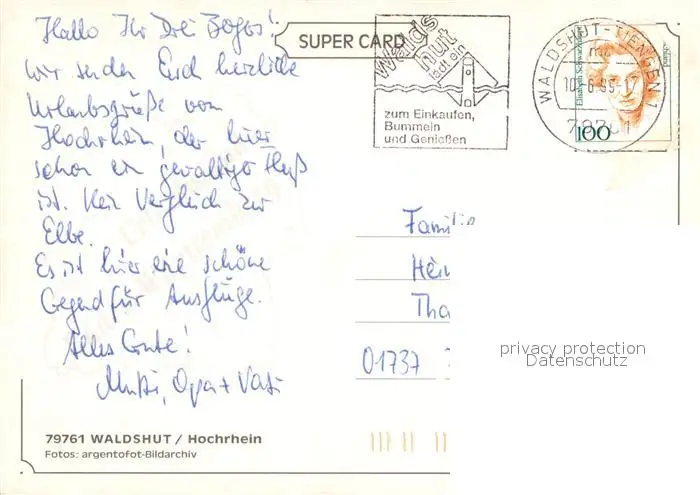 Hallo Ihr Drei
wir senden Euch herzliche
Urlaubsgrüße vom
Hochrhein, der hier
schon ein gewaltiger Fluß
ist. Kein Vergleich zur
Elbe.
Es ist hier eine schöne
Gegend für Ausflüge.
Alles Gute!
Mutti, Opa + Vati
SUPER CARD
Waldshut
lädt ein
zum Einkaufen,
Bummeln
und Genießen
WALDSHUT-TIENGEN 1
79761
100
Familie
Hein
Tha
01737
privacy protection
Datenschutz
79761 WALDSHUT / Hochrhein
Fotos: argentofot-Bildarchiv